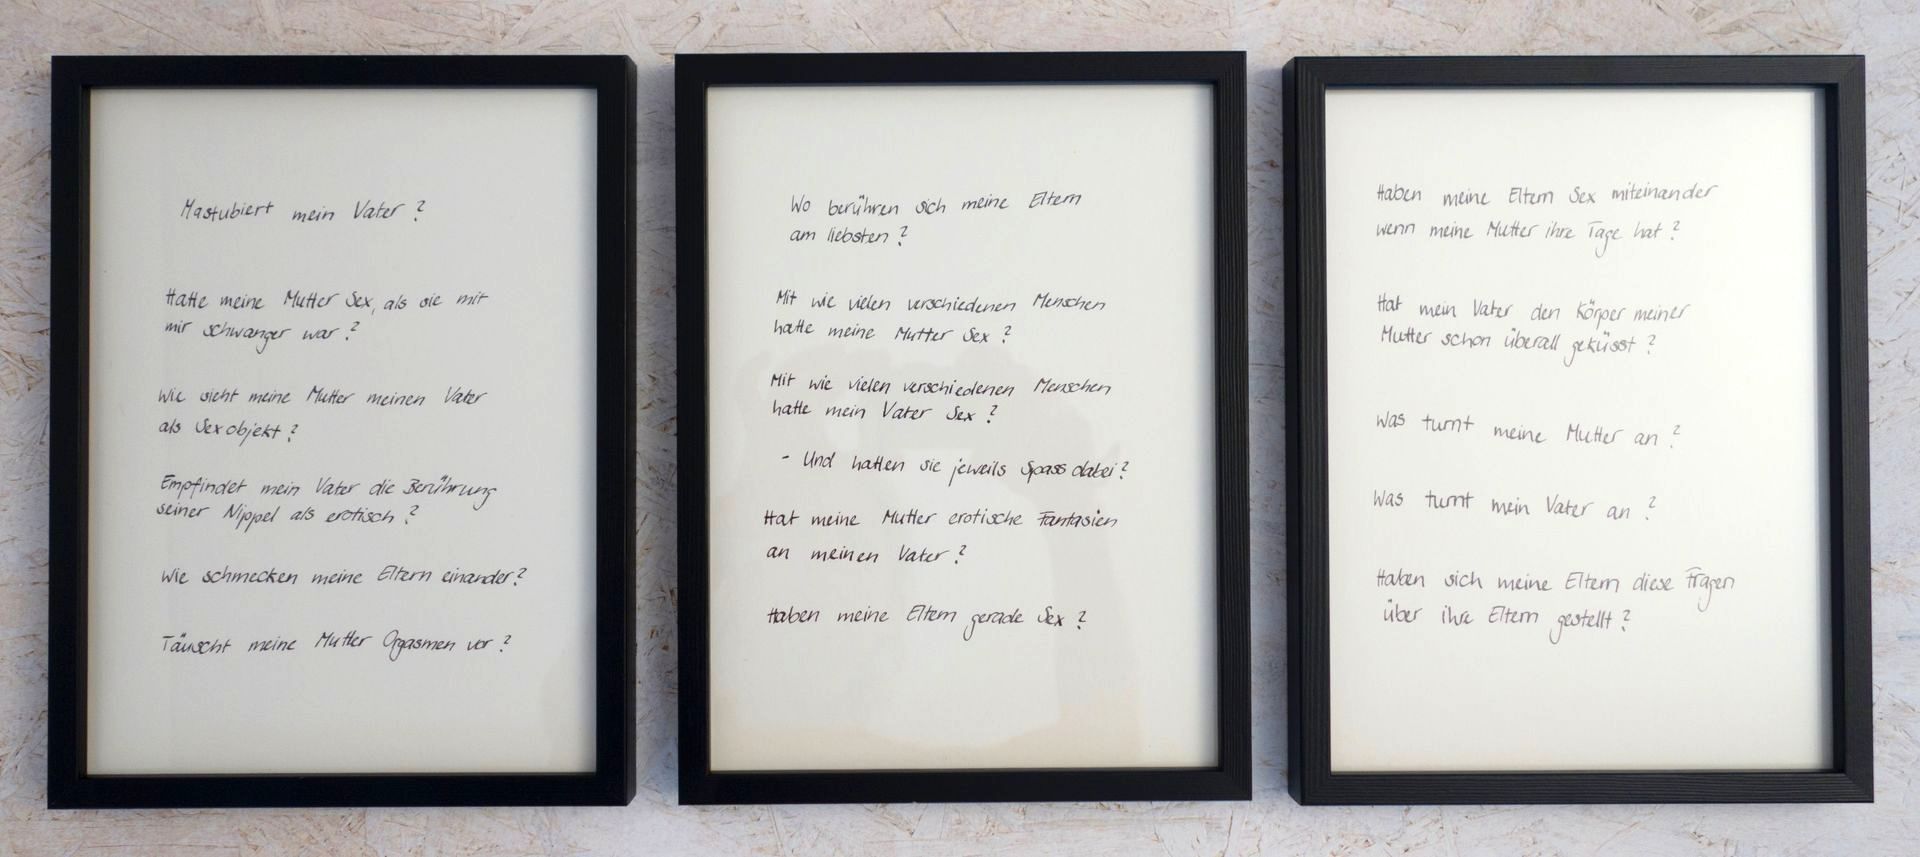 Mastubiert mein Vater ?
Hatte meine Mutter Sex, als sie mit
mir schwanger war ?
Wie sieht meine Mutter meinen Vater
als Sexobjekt ?
Empfindet mein Vater die Berührung
seiner Nippel als erotisch ?
Wie schmecken meine Eltern einander ?
Täuscht meine Mutter Orgasmen vor ?
Wo berühren sich meine Eltern
am liebsten ?
Mit wie vielen verschiedenen Menschen
hatte meine Mutter Sex ?
Mit wie vielen verschiedenen Menschen
hatte mein Vater Sex ?
- Und hatten sie jeweils Spass dabei ?
Hat meine Mutter erotische Fantasien
an meinen Vater ?
Haben meine Eltern gerade Sex ?
Haben meine Eltern Sex miteinander
wenn meine Mutter ihre Tage hat ?
Hat mein Vater den Körper meiner
Mutter schon überall geküsst ?
Was turnt meine Mutter an ?
Was turnt mein Vater an ?
Haben sich meine Eltern diese Fragen
über ihre Eltern gestellt ?